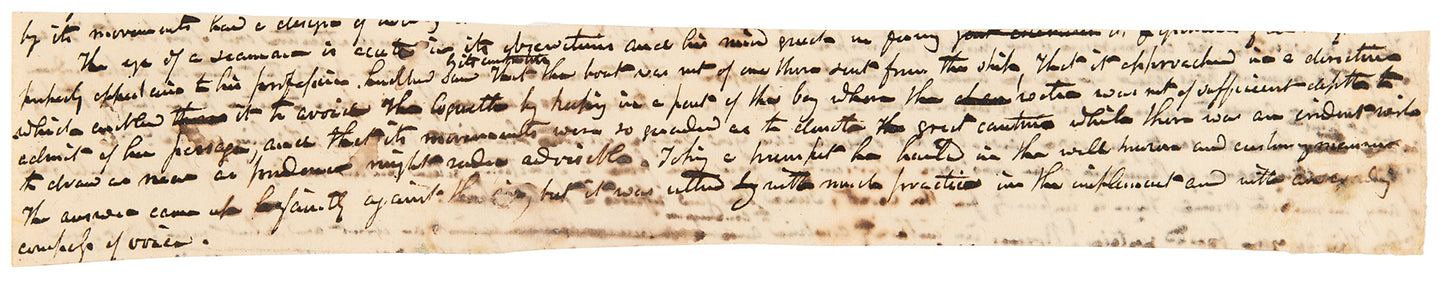 by its movements had a design of
The eye of a seaman is acute in its observations and his mind quick in forming
properly appertaining to his profession. Ludlow saw instantly that the boat was not of one those sent from the ship, that it approached in a direction
which enabled it to avoid the Coquette by keeping in a part of the bay where the water was not of sufficient depth to
admit of her passage, and that its movements were so guarded as to denote the great caution while there was an evident wish
to draw as near as prudence might render advisable. Taking a trumpet he hailed in the well known and customary manner
The answer came up faintly against the air, but it was uttered by with much practice in the implement and with an exceeding
compass of voice.